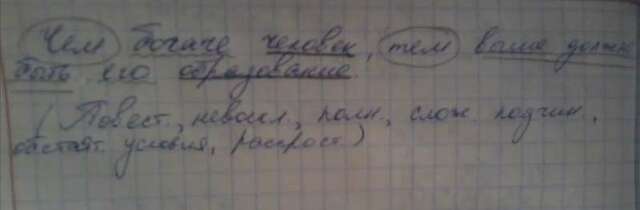 Чем богаче человек, тем выше должно
быть его образование.
(Повест., невоскл., полн., слож. подчин.,
обстоят. условия, распрост.)